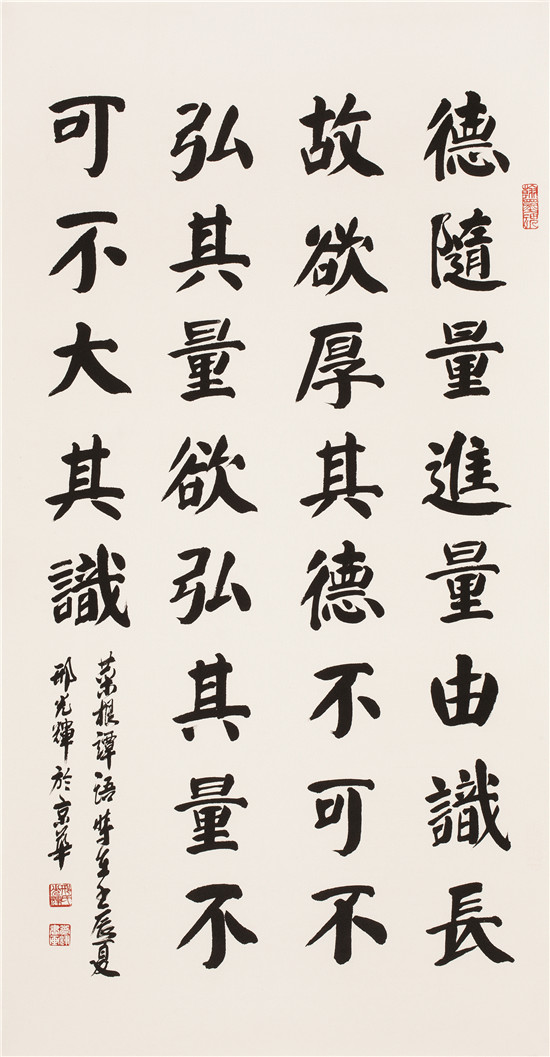 德隨量進量由識長
故欲厚其德不可不
弘其量欲弘其量不
可不大其識
菜根譚語時在壬辰夏
邢光輝於京華